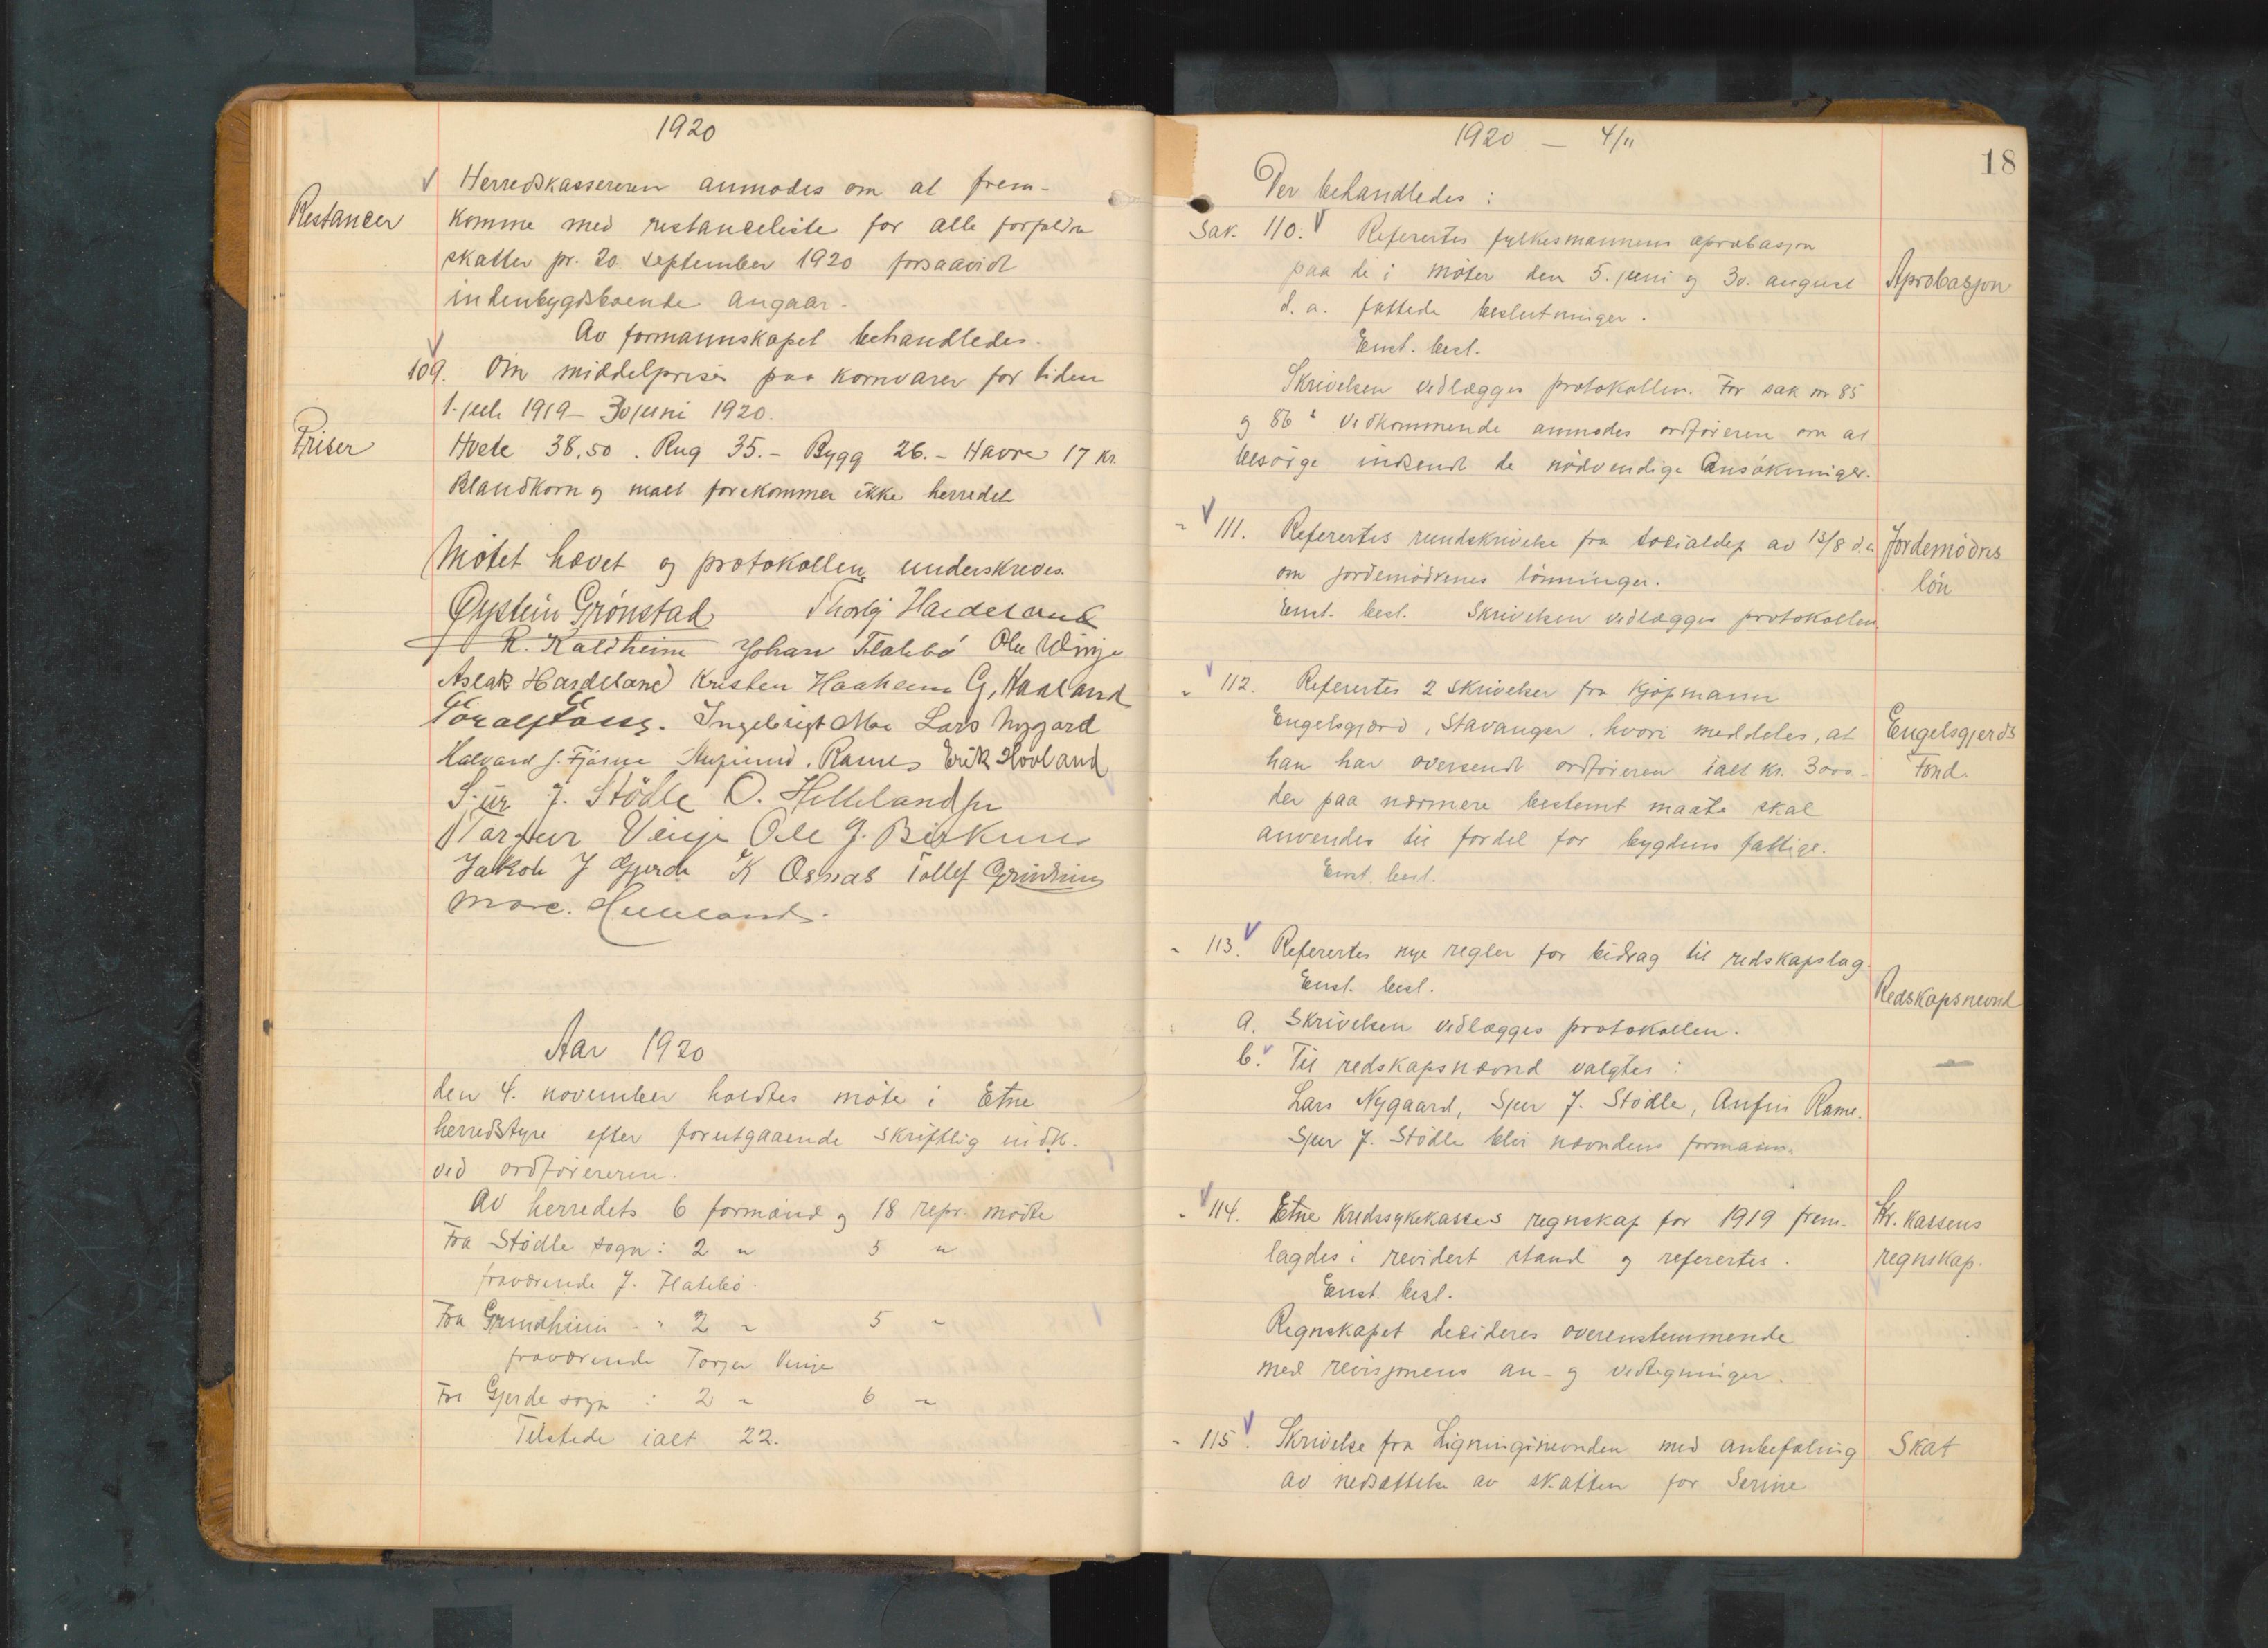 1920
Herredskassereren anmodes om at frem-
Restancer
komme med restanceliste for alle forfaldne
skatter pr. 20. september 1920 forsaavidt
indenbygdsboende angaar.
Av formannskapet behandledes.
109. Om middelpriser paa kornvarer for tiden
1. juli 1919 - 30 juni 1920.
Priser
Hvete 38,50. Rug 35.- Bygg 26.- Havre 17 kr.
Blandkorn og malt forekommer ikke herredet
Møtet hævet og protokollen underskreves.
Øystein Grønstad Thorbj Hardeland
R. Kaldheim Johan Flatebø Ole Vinje
Aslak Hardeland Kristen Haaheim G. Haaland
Ingebrigt Moe Lars Nygard
Halvard J. Fjøsne Rames Erik Hovland
Sjur J. Stödle O. Helleland
Torgeir Vinje Ole J. Birkenes
Jakob J Gjerde K Osnas Tollef Grindheim
Helleland.
Aar 1920
den 4. november holdtes møte i Etne
herredstyre efter forutgaaende skriftlig indk.
ved ordføreren.
Av herredets 6 formænd og 18 repr. møtte
Fra Stødle sogn: 2 " 5 "
fraværende J. Flatebø.
Fra Grindheim - " 2 " 5 "
fraværende Torger Vinje
Fra Gjerde sogn : 2 " 6 "
Tilstede ialt 22.
1920 — 4/11
18
Der behandledes:
Sak. 110. Referertes fylkesmannens aprobasjon
paa de i møter den 5. juni og 30. august
Aprobasjon
d. a. fattede beslutninger.
Enst. besl.
Skrivelsen vedlægges protokollen. For sak nr 85
og 86 vedkommende anmodes ordføreren om at
besørge indsendt de nødvendige ansøkninger.
" 111. Referertes rundskrivelse fra Socialdep av 13/8 d.a
Jordemødres
om jordemødrenes lønninger.
løn
Enst. besl. Skrivelsen vedlægges protokollen.
" 112. Referertes 2 skrivelser fra kjøpmann
Engelsgjærd, Stavanger, hvori meddeles, at
Engelsgjerds
han har oversendt ordføreren ialt kr. 3000.-
Fond.
der paa nærmere bestemt maate skal
anvendes til fordel for bygdens fattige.
Enst. besl.
" 113. Referertes nye regler for bidrag til redskapslag.
Enst. besl.
Redskapsnevnd
a. Skrivelsen vedlægges protokollen.
b. Til redskapsnævnd valgtes:
Lars Nygaard, Sjur J. Stødle, Anfin Rame.
Sjur J. Stødle blir nævndens formann.
" 114. Etne Kredssykekasses regnskap for 1919 frem-
Kr. kassens
lagdes i revidert stand og referertes.
regnskap.
Enst. besl.
Regnskapet decideres overenstemmende
med revisjonens an- og vedtegninger.
" 115. Skrivelse fra Ligningsnevnden med anbefaling
Skat
av nedsættelse av skatten for Serine